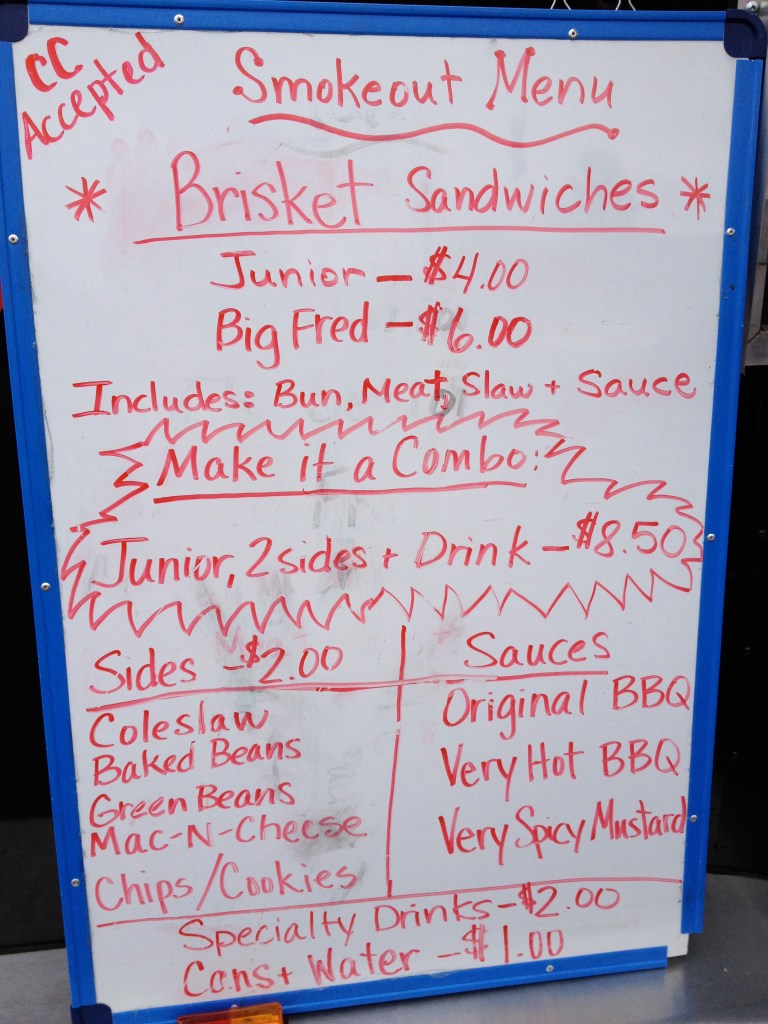 CC
Accepted
Smokeout Menu
* Brisket Sandwiches *
Junior - $4.00
Big Fred - $6.00
Includes: Bun, Meat, Slaw + Sauce
Make it a Combo:
Junior, 2 sides + Drink - $8.50
Sides - $2.00
Coleslaw
Baked Beans
Green Beans
Mac-N-Cheese
Chips/Cookies
Sauces
Original BBQ
Very Hot BBQ
Very Spicy Mustard
Specialty Drinks - $2.00
Cans + Water - $1.00